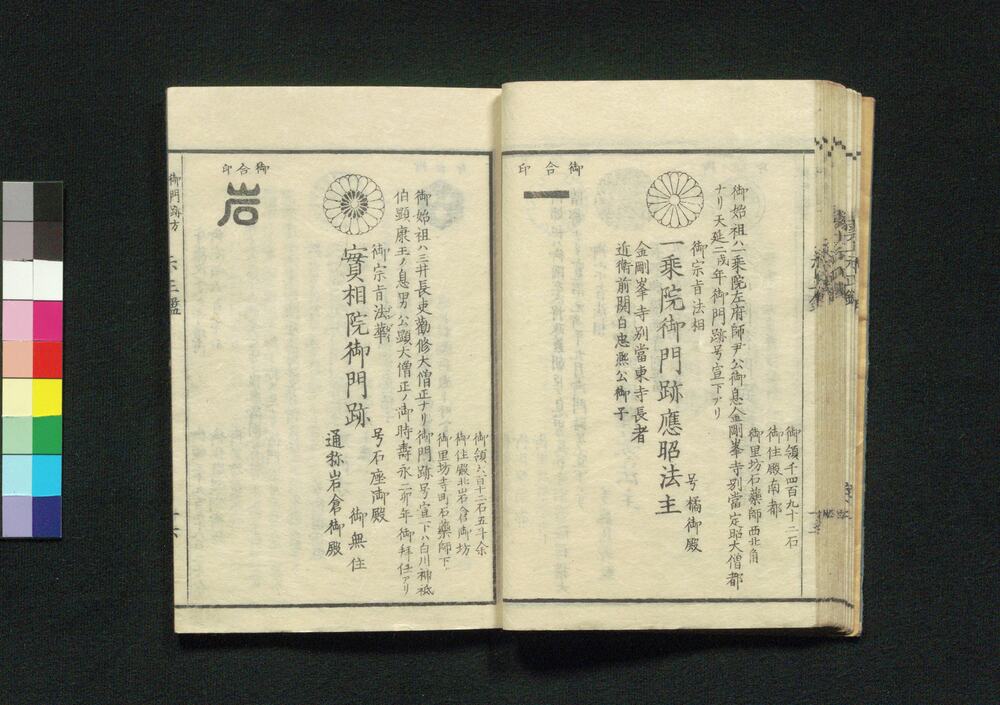 御領千四百九十二石
御住殿南都
御里坊石藥師西北角
御始祖ハ一乘院左府師尹公御息金剛峯寺別當定昭大僧都
ナリ天延二戌年御門跡号宣下アリ
御宗旨法相
一乘院御門跡應昭法主
号橘御殿
金剛峯寺別當東寺長者
近衛前関白忠凞公御子
御合印
一
御領六百十二石五斗余
御住殿北岩倉御坊
御里坊寺町石藥師下
御始祖ハ三井長吏勸修大僧正ナリ御門跡号宣下ハ白川神祗
伯顕康王ノ息男公顕大僧正ノ御時壽永二卯年御拜任アリ
御宗旨法華
号石座御殿
實相院御門跡
御無住
通称岩倉御殿
御合印
岩
御門跡方